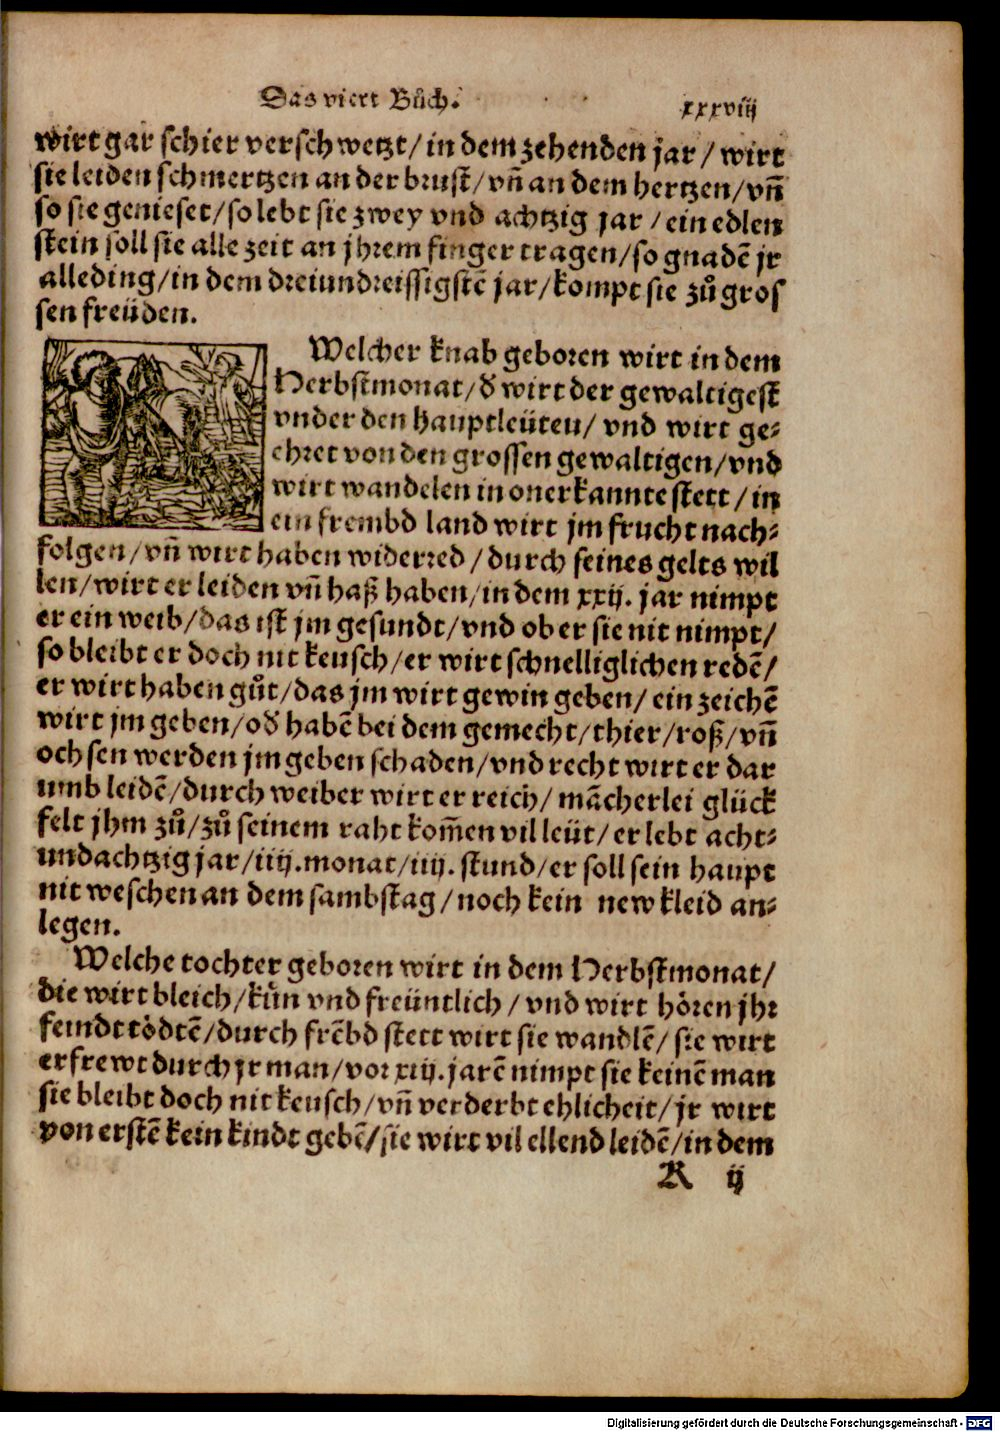 Das viert Bůch.
xxxviij
wirt gar schier verschwetzt/in dem zehenden jar/wirt
sie leiden schmertzen an der brust/vñ an dem hertzen/vñ
so sie genieset/so lebt sie zwey vnd achtzig jar/ein edlen
stein soll sie alle zeit an jhrem finger tragen/so gnadẽ jr
alleding/in dem dreiundreissigstẽ jar/kompt sie zů gros
sen freüden.
Welcher knab geboren wirt in dem
Herbstmonat/d' wirt der gewaltigest
vnder den hauptleüten/vnd wirt ge⸗
ehret von den grossen gewaltigen/vnd
wirt wandelen in onerkannte stett/in
ein frembd land wirt jm frucht nach⸗
folgen/vñ wirt haben widerred/durch seines gelts wil
len/wirt er leiden vñ haß haben/in dem xxij. jar nimpt
er ein weib/das ist jm gesundt/vnd ob er sie nit nimpt/
so bleibt er doch nit keusch/er wirt schnelliglichen redẽ/
er wirt haben gůt/das jm wirt gewin geben/ein zeichẽ
wirt jm geben/od' habẽ bei dem gemecht/thier/roß/vñ
ochsen werden jm geben schaden/vnd recht wirt er dar
umb leidẽ/durch weiber wirt er reich/mãcherlei glück
felt jhm zů/zů seinem raht kom̃en vil leüt/er lebt acht⸗
undachtzig jar/iiij.monat/iiij.stund/er soll sein haupt
nit weschen an dem sambstag/noch kein new kleid an⸗
legen.
Welche tochter geboren wirt in dem Herbstmonat/
die wirt bleich/kůn vnd freüntlich/vnd wirt hören jhr
feindt tödtẽ/durch frẽbd stett wirt sie wandlẽ/sie wirt
erfrewt durch jr man/vor xiij.jarẽ nimpt sie keinẽ man
sie bleibt doch nit keusch/vñ verderbt ehlicheit/jr wirt
von erstẽ kein kindt gebẽ/sie wirt vil ellend leidẽ/in dem
K ij
Digitalisierung gefördert durch die Deutsche Forschungsgemeinschaft - DFG